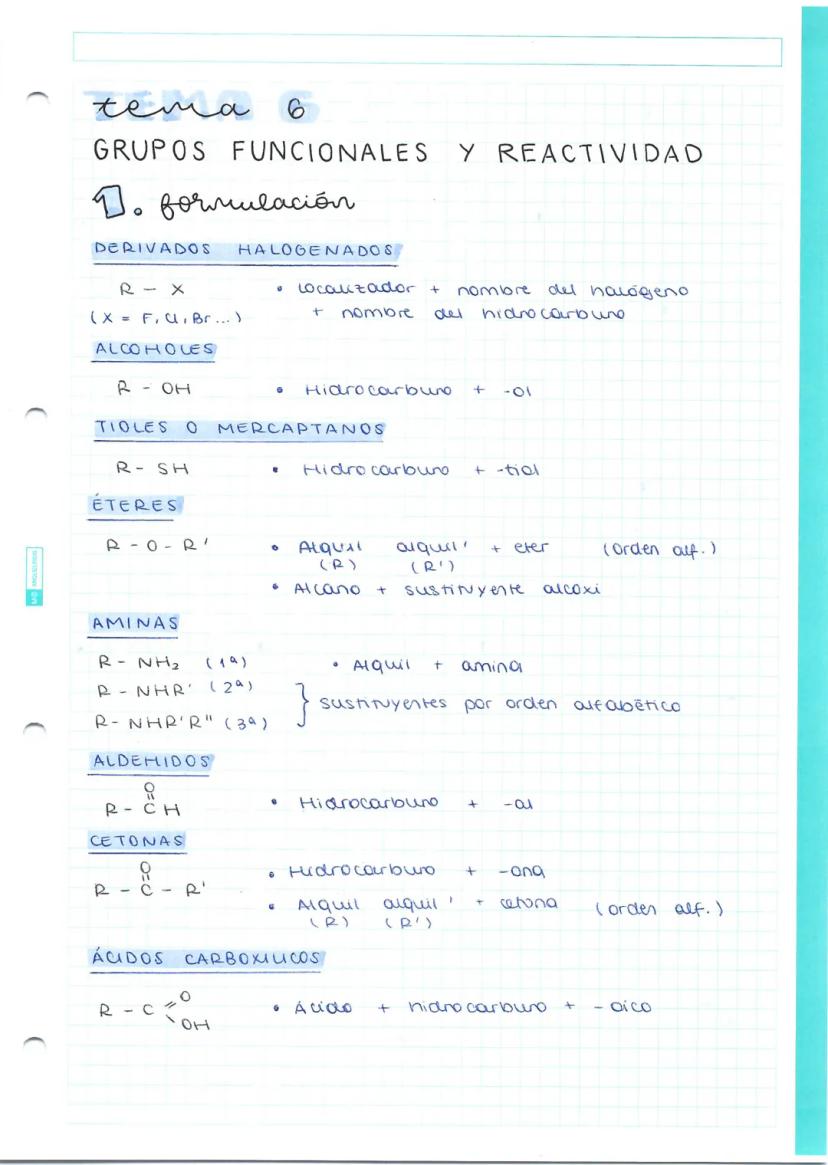 tema 6
GRUPOS FUNCIONALES Y REACTIVIDAD
1. formulación
DERIVADOS HALOGENADOS
R - X • Localizador + nombre del halógeno
(X = F, Cl, Br...) + nombre del hidrocarburo
ALCOHOLES
R - OH • Hidrocarburo + -ol
TIOLES O MERCAPTANOS
R - SH • Hidrocarburo + -tiol
ÉTERES
R - O - R' • Alquil alquil' + eter (orden alf.)
(R) (R')
• Alcano + sustituyente alcoxi
AMINAS
R - NH₂ (1ª) • Alquil + amina
R - NHR' (2ª)
} sustituyentes por orden alfabético
R - NHR'R" (3ª)
ALDEHIDOS
O
R - C H • Hidrocarburo + -al
CETONAS
O • Hidrocarburo + -ona
R - C - R'
• Alquil alquil' + cetona (orden alf.)
(R) (R')
ÁCIDOS CARBOXILICOS
O
R - C • Ácido + hidrocarburo + -oico
OH